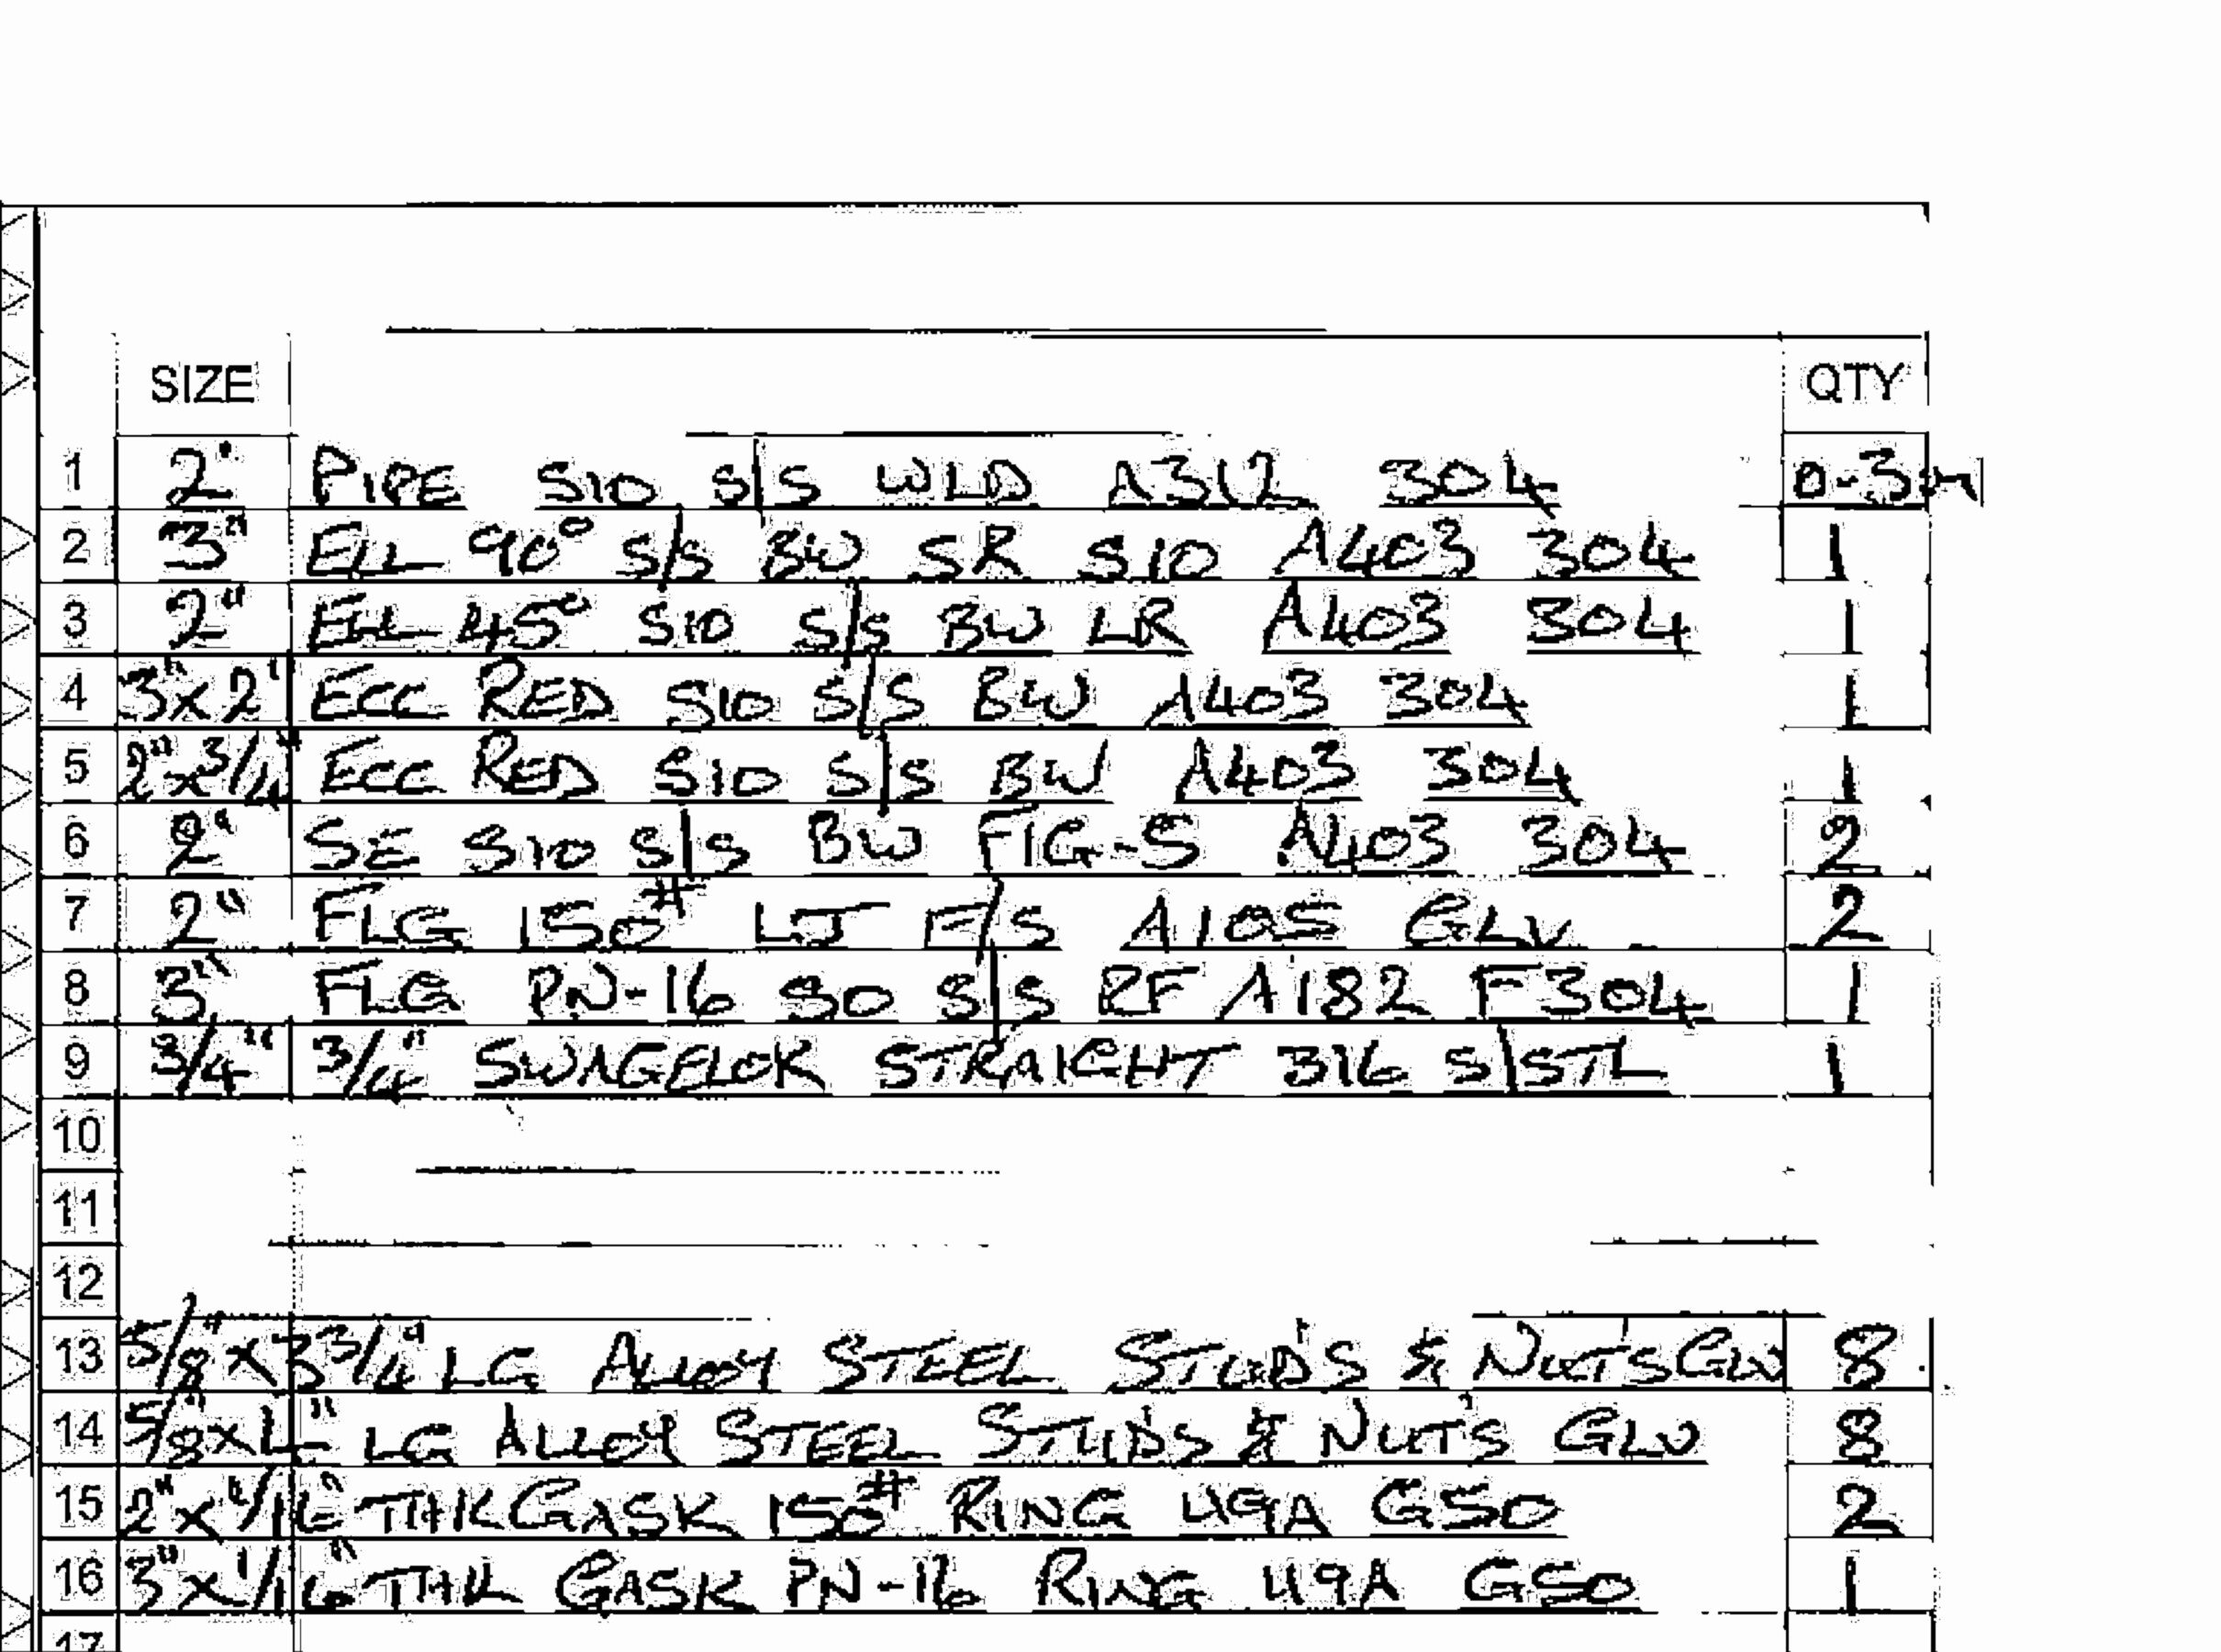 SIZE QTY
1 2" PIPE S10 S/S WLD A312 304 0-3M
2 3" ELL 90° S/S BW SR S10 A403 304 1
3 2" ELL 45° S10 S/S BW LR A403 304 1
4 3"x2" ECC RED S10 S/S BW A403 304 1
5 2"x3/4" ECC RED S10 S/S BW A403 304 1
6 2" SE S10 S/S BW FIG-5 A403 304 2
7 2" FLG 150# LJ F/S A105 GLV 2
8 3" FLG PN-16 SO S/S RF A182 F304 1
9 3/4" 3/4" SWAGELOK STRAIGHT 316 S/STL 1
10
11
12
13 5/8"x33/4" LG ALLOY STEEL STUD'S & NUT'S GLV 8
14 5/8"x4" LG ALLOY STEEL STUD'S & NUT'S GLV 8
15 2"x1/16" THK GASK 150# RING U9A GSO 2
16 3"x1/16" THK GASK PN-16 RING U9A GSO 1
17